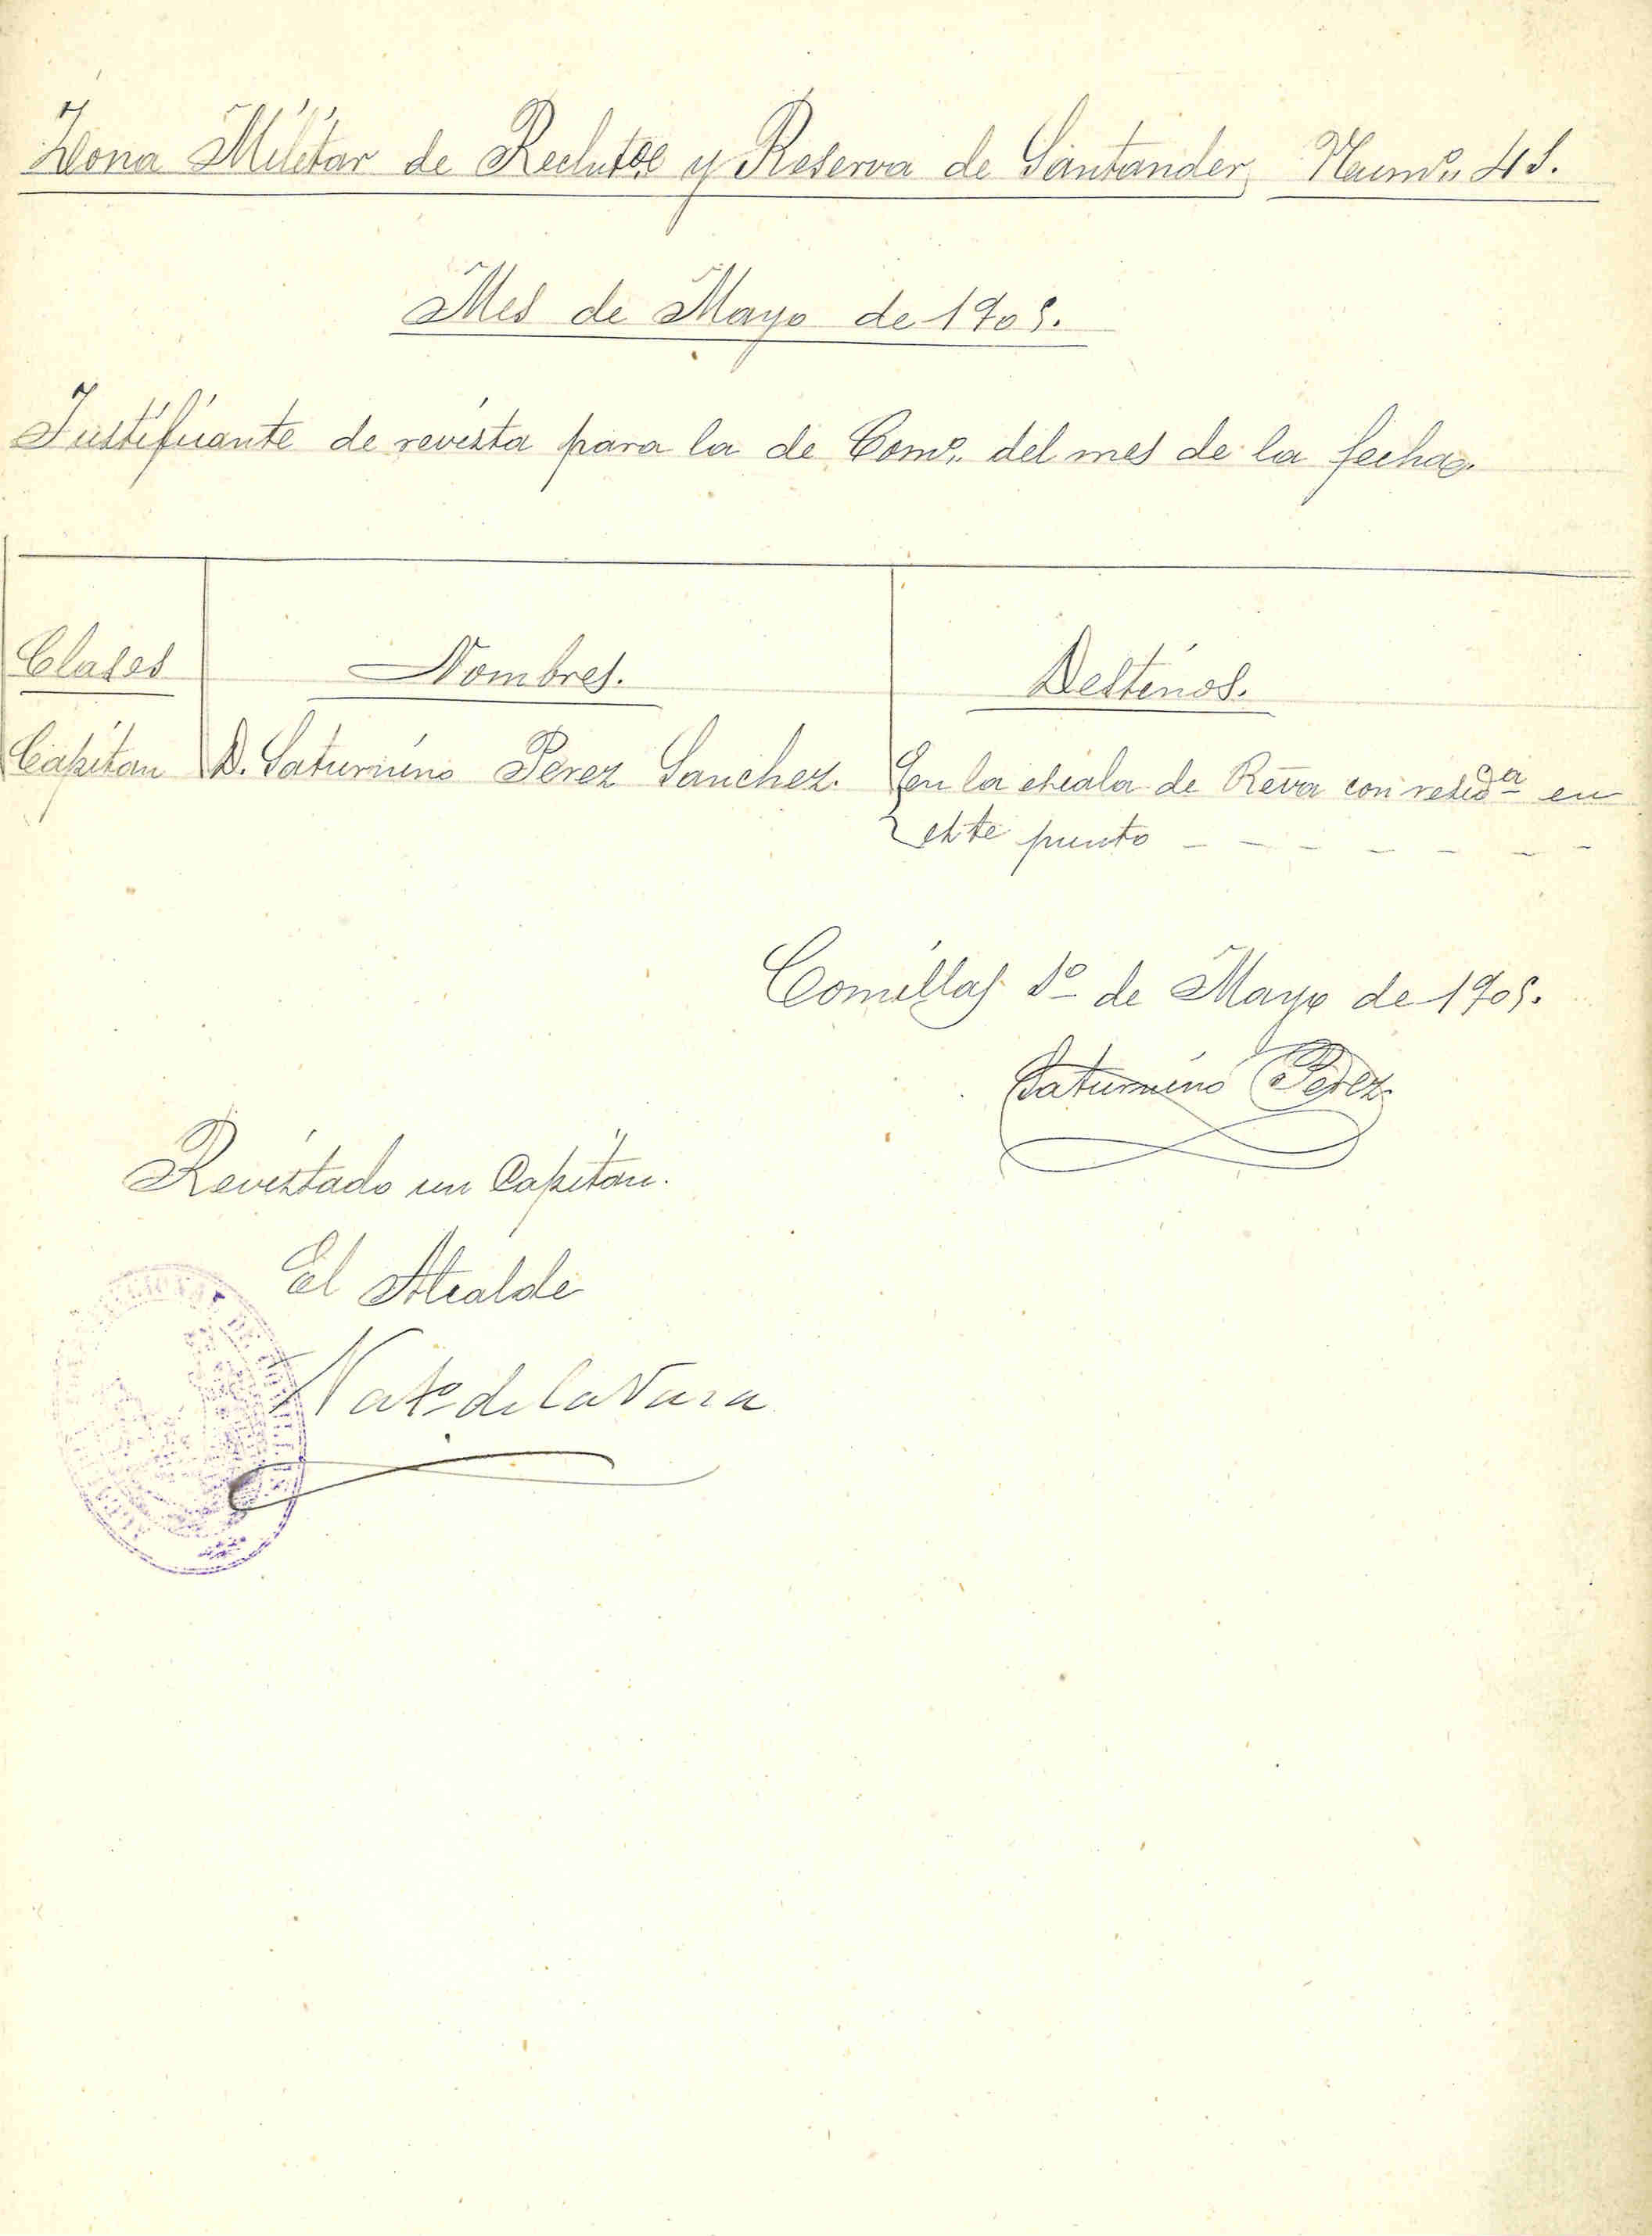 Zona Militar de Reclutas y Reserva de Santander, Numº. 41.
Mes de Mayo de 1905.
Justificante de revista para la de Comº. del mes de la fecha.
Clases
Nombres.
Destinos.
Capitan D. Saturnino Perez Sanchez. En la escala de Reva con residª en
este punto - - - - - - -
Comillas 1º de Mayo de 1905.
Saturnino Perez
Revistado un Capitan.
El Alcalde
Natº de la Vara